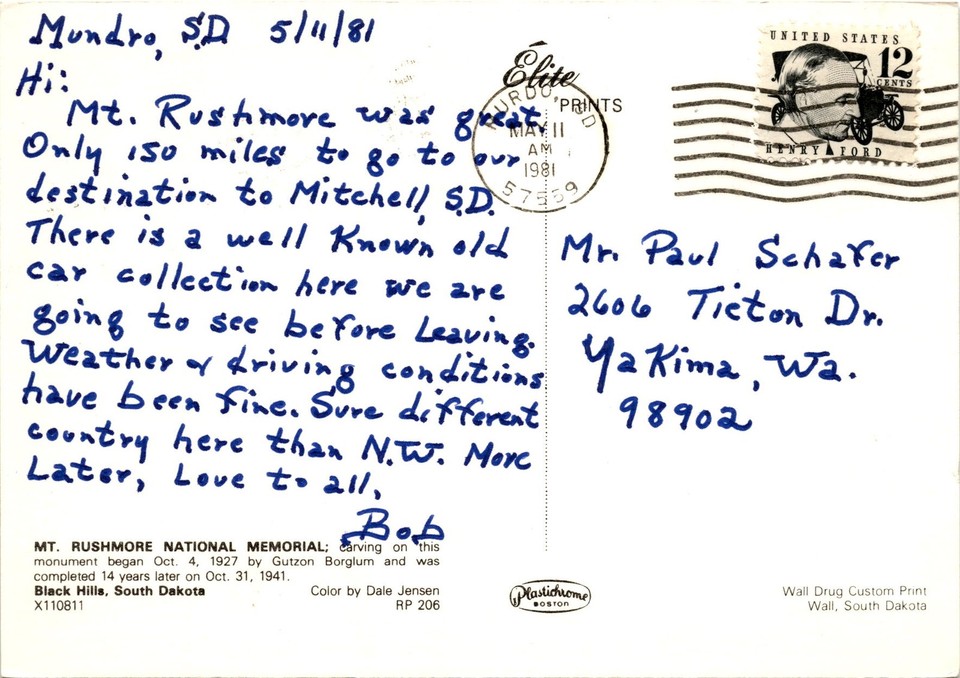 Mundro, S.D. 5/11/81
Hi:
Mt. Rushmore was great.
Only 150 miles to go to our
destination to Mitchell, S.D.
There is a well Known old
car collection here we are
going to see before Leaving.
Weather & driving conditions
have been fine. Sure different
country here than N.W. More
Later, Love to all,
Bob
MT. RUSHMORE NATIONAL MEMORIAL; carving on this
monument began Oct. 4, 1927 by Gutzon Borglum and was
completed 14 years later on Oct. 31, 1941.
Black Hills, South Dakota Color by Dale Jensen
X110811 RP 206
Élite
PRINTS
MURDO, SD
MAY 11
AM
1981
57559
UNITED STATES
12
CENTS
HENRY FORD
Mr. Paul Schafer
2606 Tieton Dr.
Yakima, Wa.
98902
Plastichrome
BOSTON
Wall Drug Custom Print
Wall, South Dakota